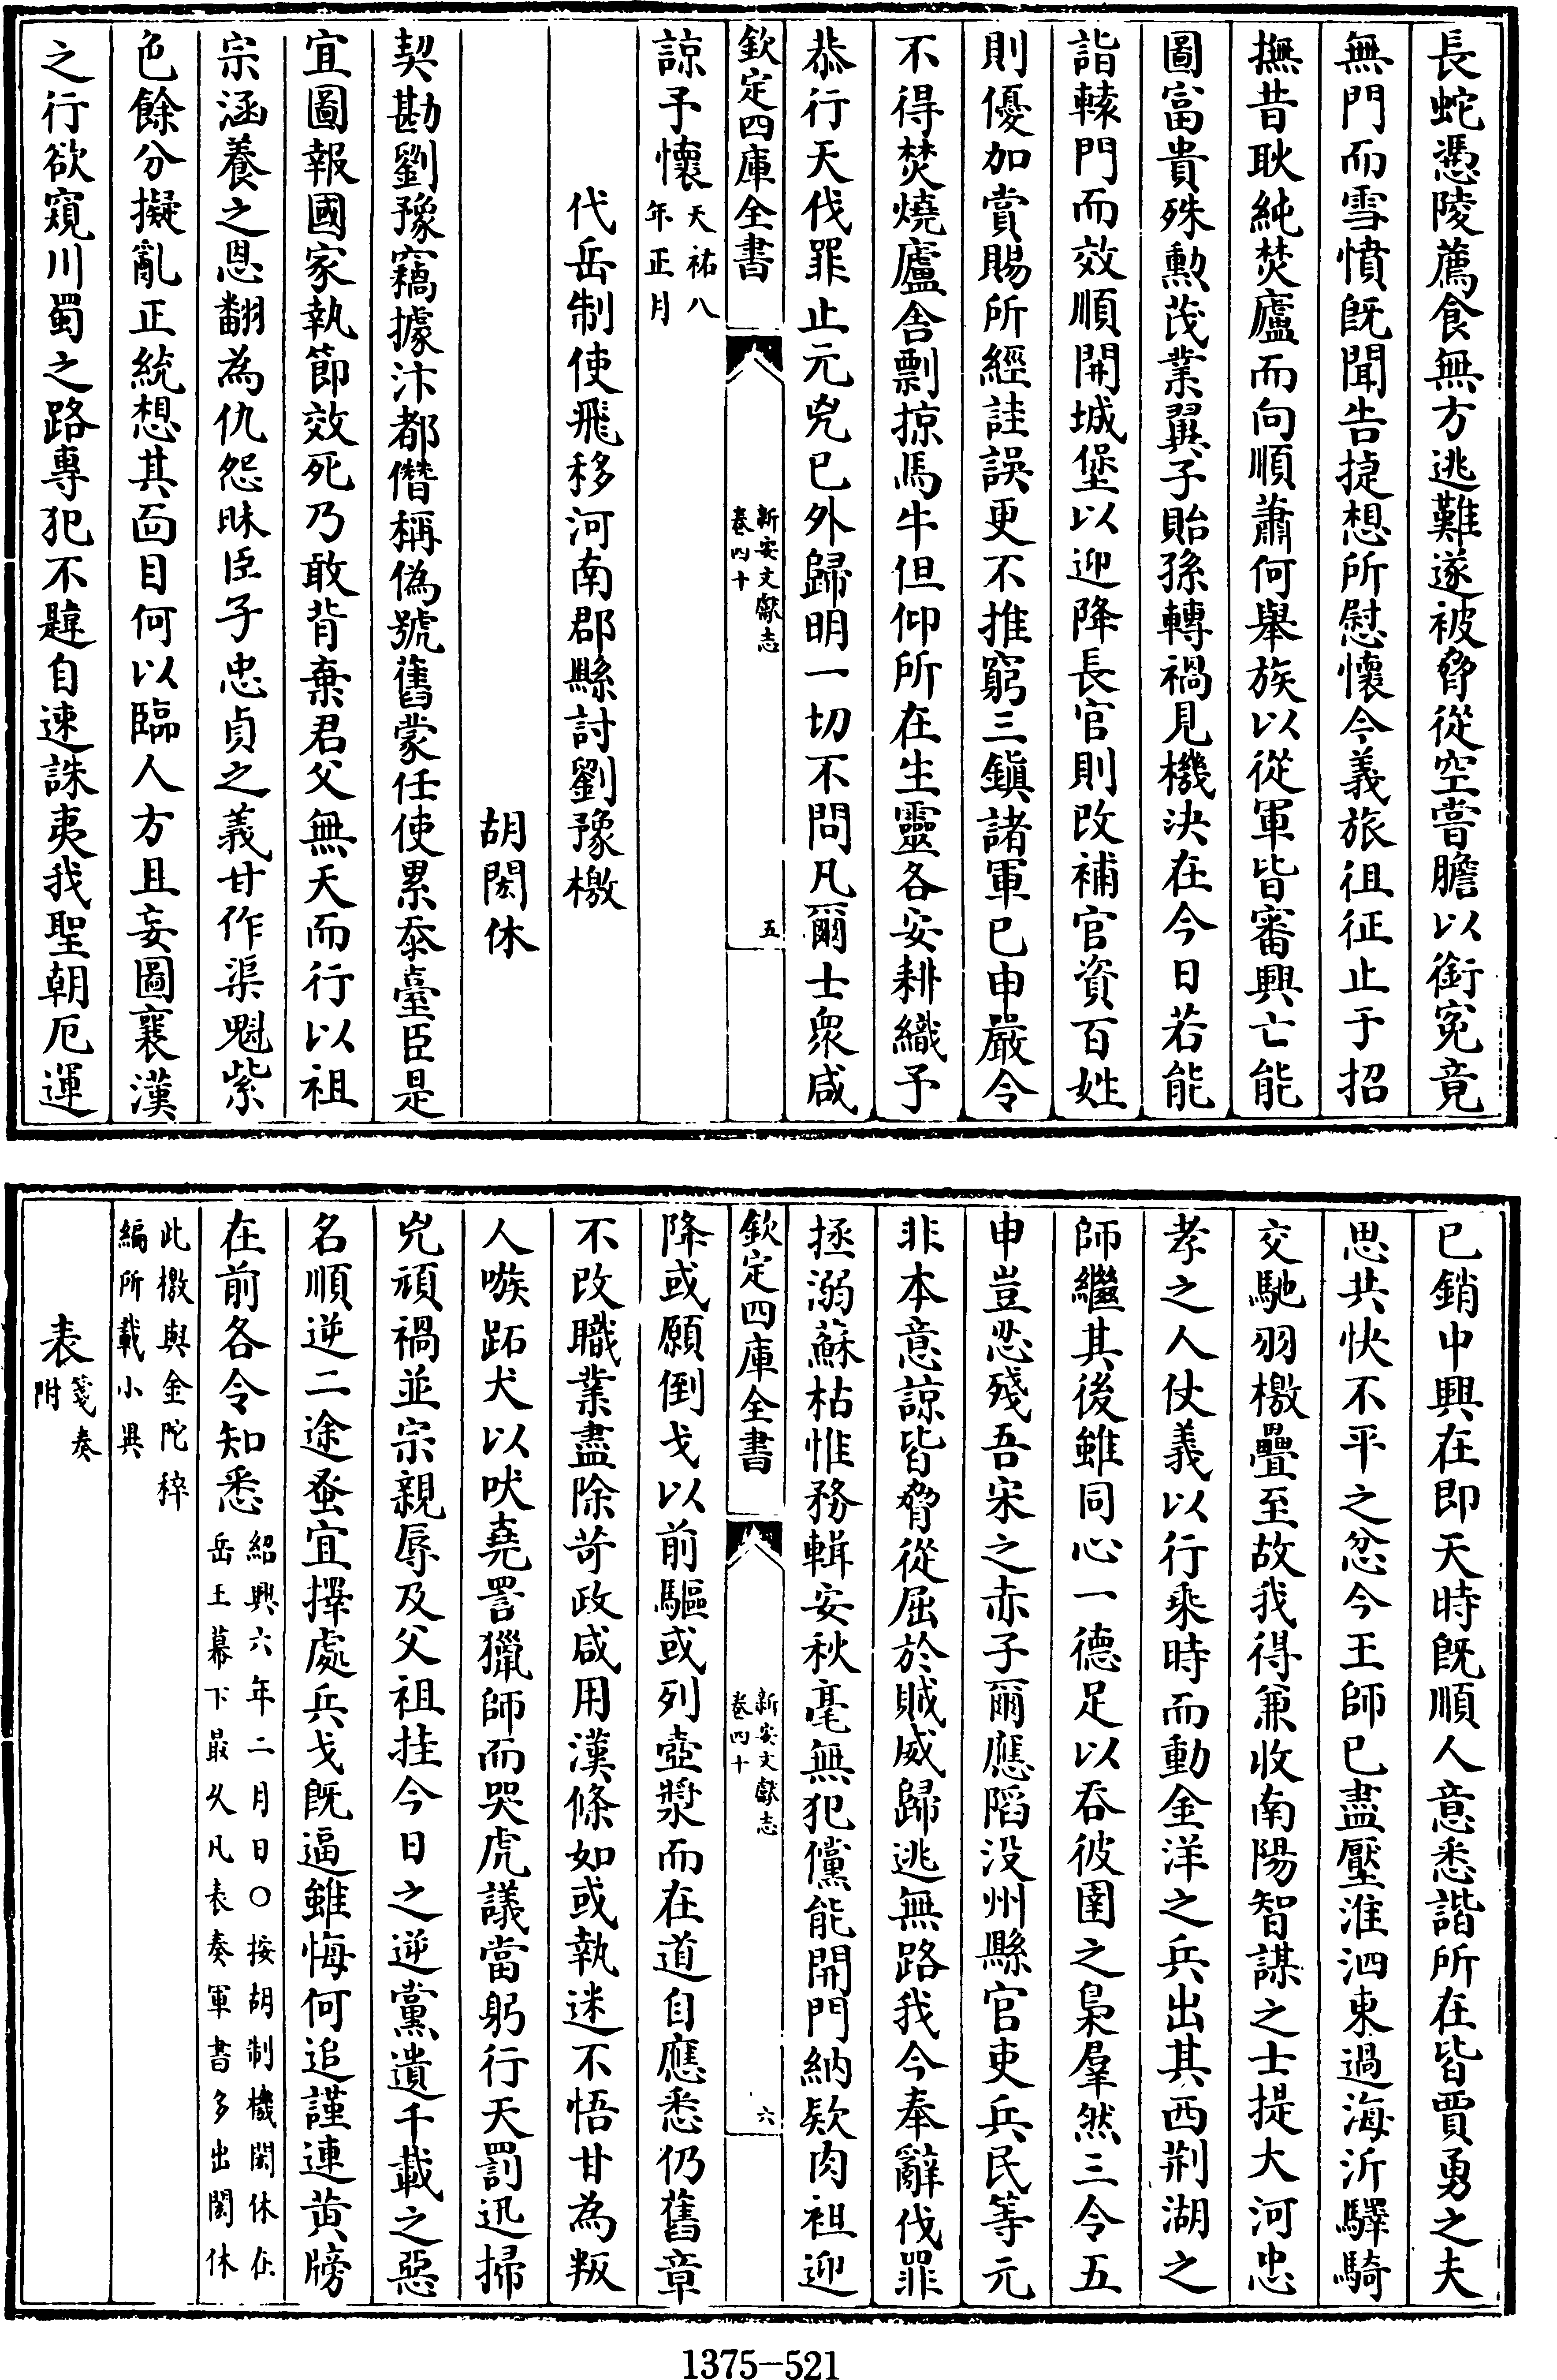 長蛇憑陵薦食無方逃難遂被脅從空嘗膽以銜寃竟
無門而雪憤既聞告捷想所慰懷今義旅徂征止于招
撫昔耿純焚廬而向順蕭何舉族以從軍皆審興亡能
圖富貴殊勲茂業翼子貽孫轉禍見機決在今日若能
詣轅門而效順開城堡以迎降長官則改補官資百姓
則優加賞賜所經詿誤更不推窮三鎮諸軍已申嚴令
不得焚燒廬舍剽掠馬牛但仰所在生靈各安耕織予
恭行天伐罪止元兇已外歸明一切不問凡爾士衆咸
欽定四庫全書
新安文獻志
卷四十
五
諒予懷天祐八
年正月
代岳制使飛移河南郡縣討劉豫檄
胡閎休
契勘劉豫竊據汴都僭稱偽號舊蒙任使累忝臺臣是
宜圖報國家執節效死乃敢背棄君父無天而行以祖
宗涵養之恩翻為仇怨昧臣子忠貞之義甘作渠魁紫
色餘分擬亂正統想其面目何以臨人方且妄圖襄漢
之行欲窺川蜀之路專犯不韙自速誅夷我聖朝厄運
已銷中興在即天時既順人意悉諧所在皆賈勇之夫
思共快不平之忿今王師已盡壓淮泗東過海沂驛騎
交馳羽檄疊至故我得兼收南陽智謀之士提大河忠
孝之人仗義以行乘時而動金洋之兵出其西荆湖之
師繼其後雖同心一德足以吞彼圉之梟羣然三令五
申豈忍殘吾宋之赤子爾應陷没州縣官吏兵民等元
非本意諒皆脅從屈於賊威歸逃無路我今奉辭伐罪
拯溺蘇枯惟務輯安秋毫無犯儻能開門納欵肉袒迎
欽定四庫全書
新安文獻志
卷四十
六
降或願倒戈以前驅或列壺漿而在道自應悉仍舊章
不改職業盡除苛政咸用漢條如或執迷不悟甘為叛
人嗾跖犬以吠堯詈獵師而哭虎議當躬行天罰迅掃
兇頑禍並宗親辱及父祖挂今日之逆黨遺千載之惡
名順逆二途蚤宜擇處兵戈既逼雖悔何追謹連黄牓
在前各令知悉紹興六年二月日〇按胡制機閎休在
岳王幕下最久凡表奏軍書多出閎休
此檄與金陀稡
編所載小異
表箋奏
附
1375-521